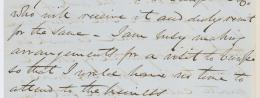 who will receive it and duly remit
for the same - I am busy making
arrangements for a visit to Europe
so that I would have no time to
attend to the business